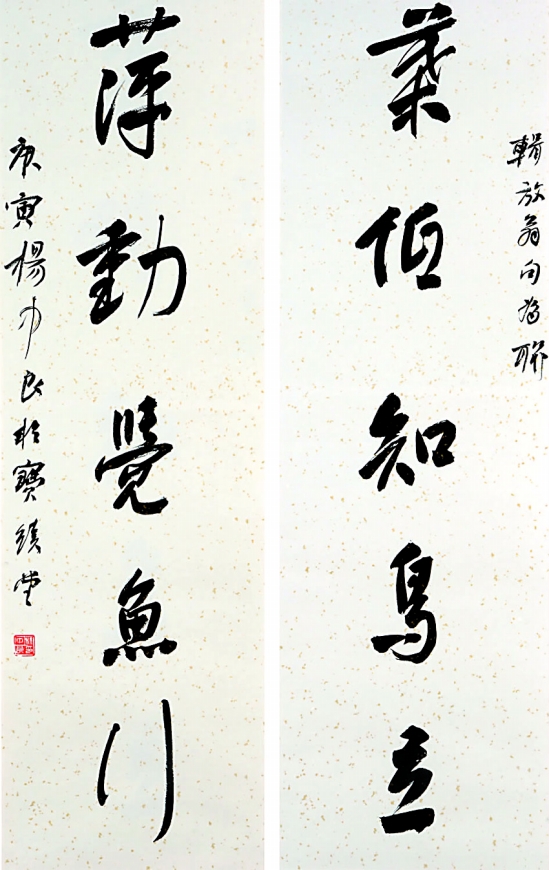 輯放翁句為聯
葉低知鳥立
萍動覺魚行
庚寅楊中良於寶績堂